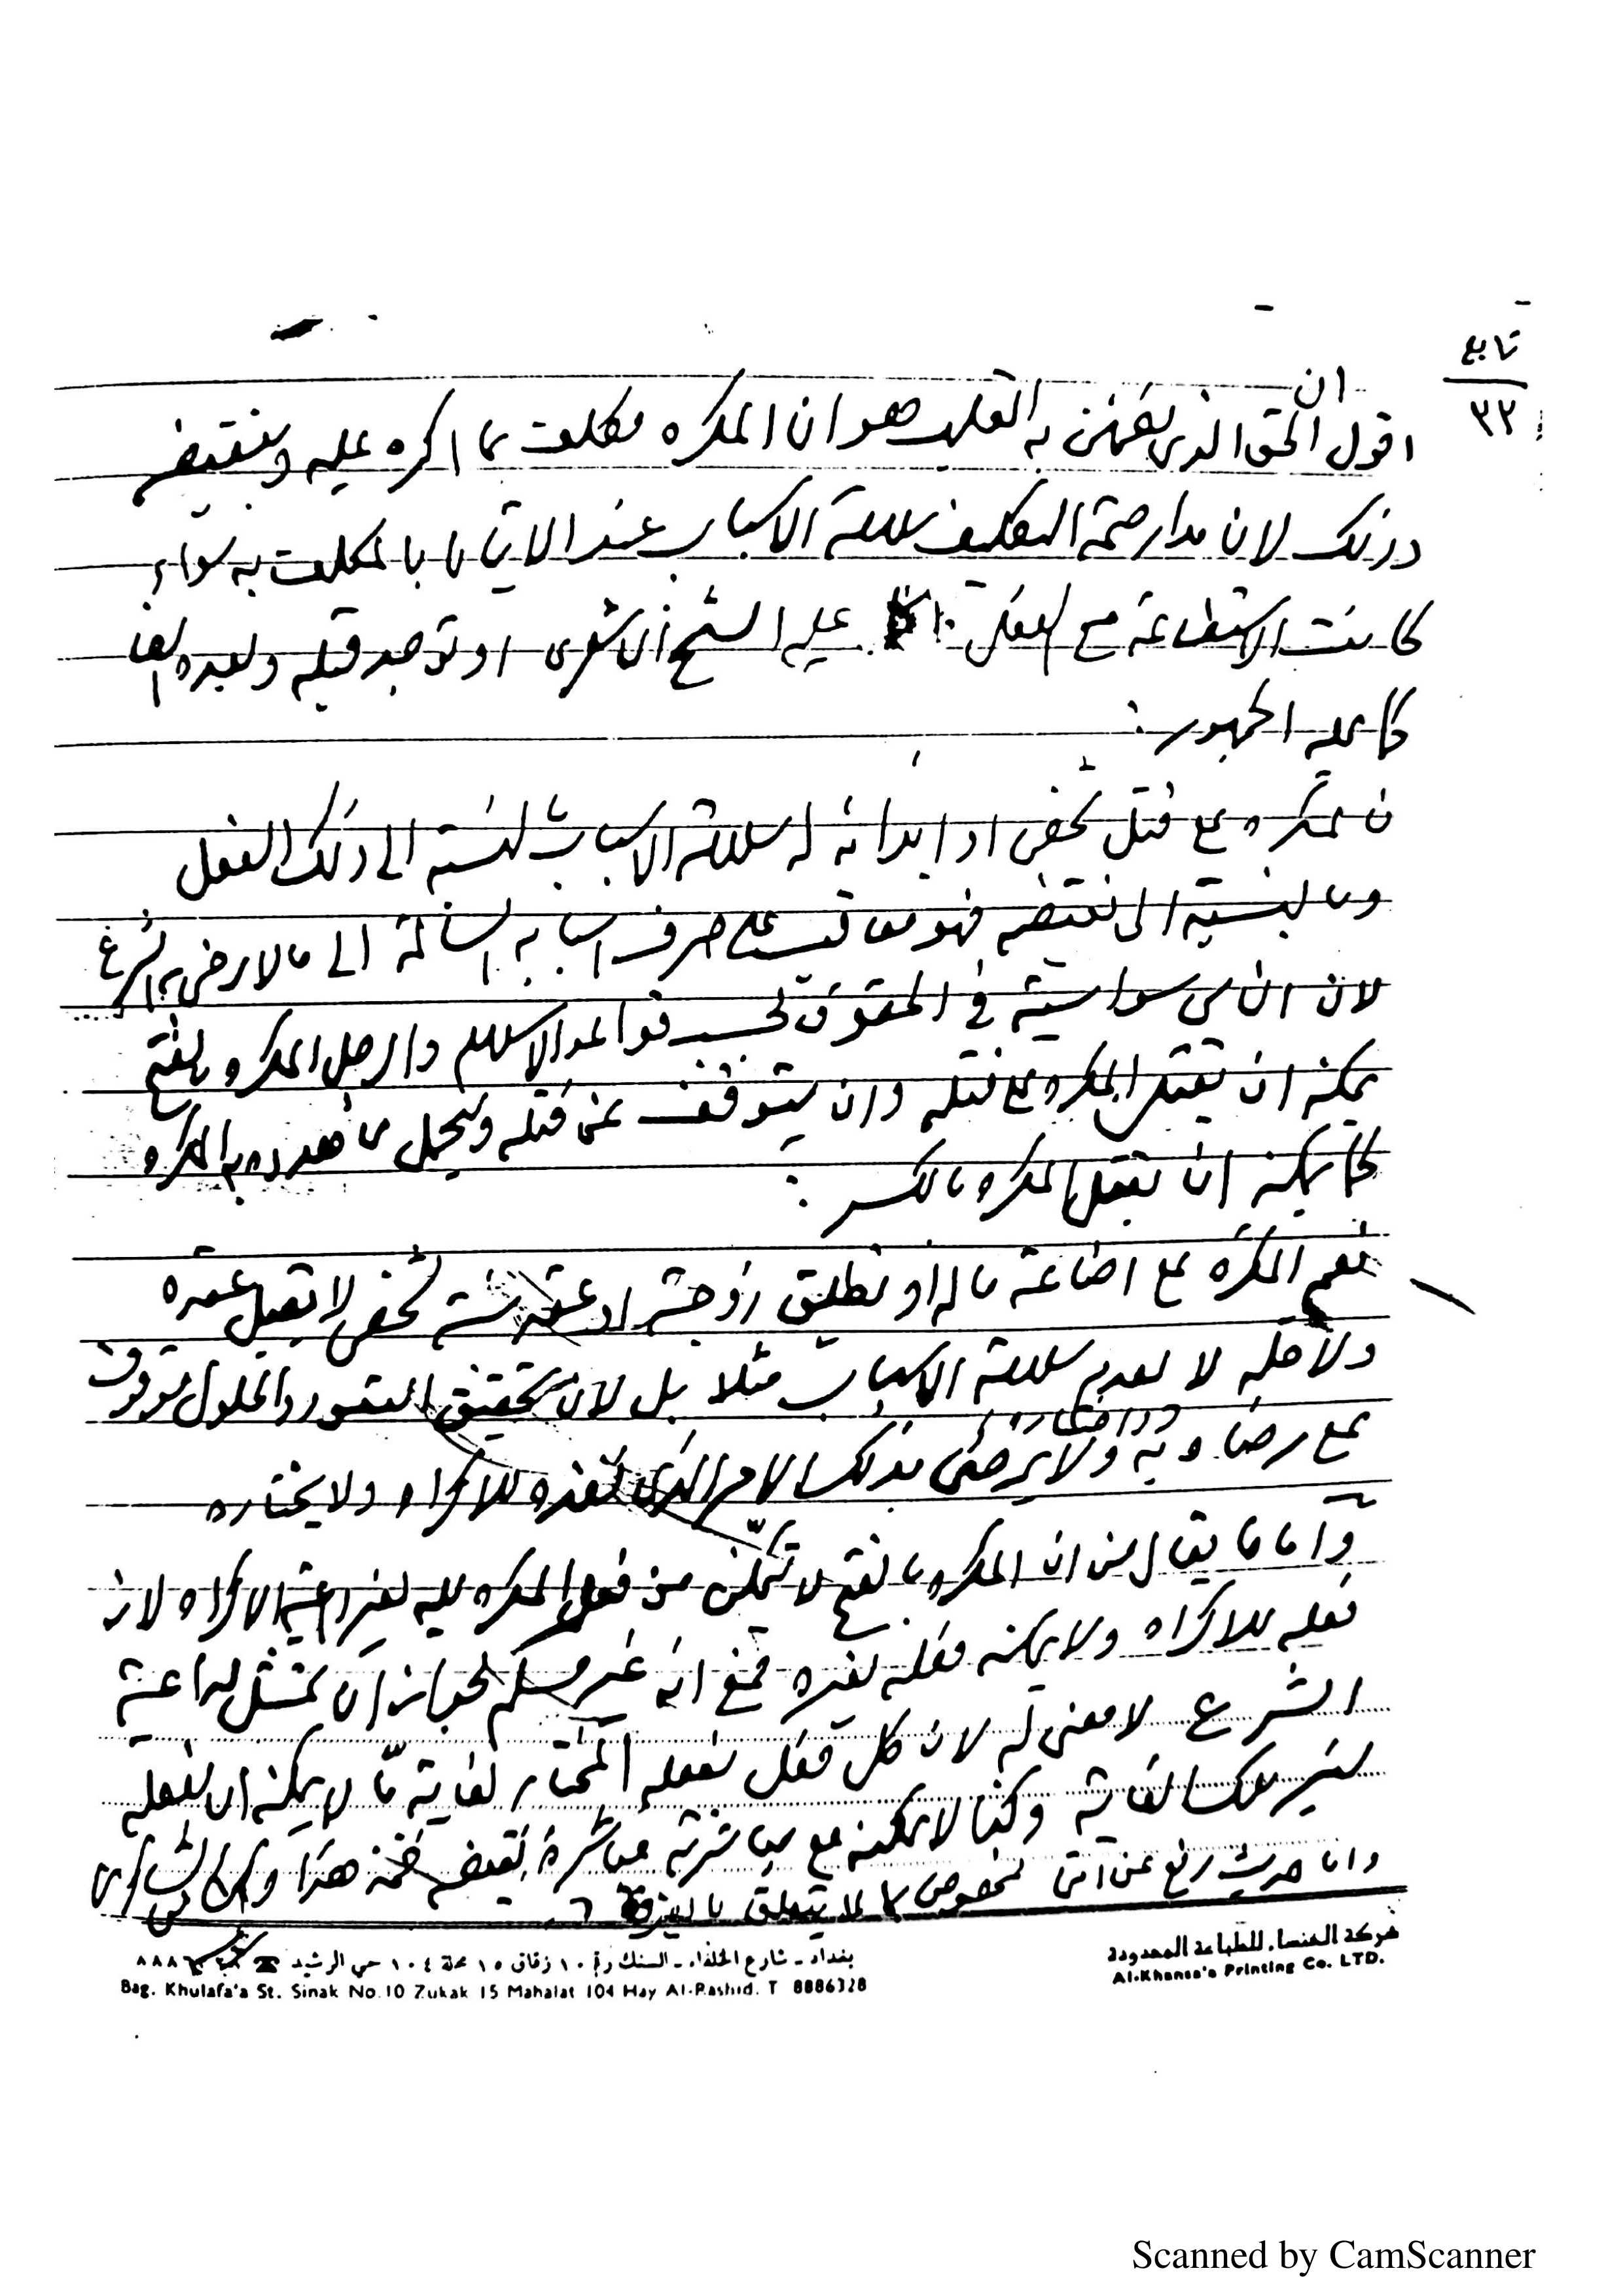 تابع
٣٢
اقول ان الحق الذي يطمئن به القلب هو ان المكره مكلف بما اكره عليه وبنقيضه
وذلك لان مدار صحة التكليف سلامة الاسباب عند الاتيان بالمكلف به سواء
كانت الاستطاعة مع الفعل عليه الشيخ الاشعري او توجد قبله وبعده ايضا
كما عليه الجمهور:
فالمكره على قتل شخص او ايذائه له سلامة الاسباب بالنسبة الى ذلك الفعل
وبالنسبة الى نقيضه فهو معاقب على صرف اسبابه السالمة الى ما لا يرضى به الشرع
لان الناس سواسية في الحقوق بحسب قواعد الاسلام والرجل المكره بالفتح
يمكنه ان يقتل المكره على قتله وان يتوقف عن قتله ويتحمل ما هدده به المكره
كما يمكنه ان يقتل المكره بالكسر:
نعم المكره على اضاعة ماله او تطليق زوجته او عقد بنته لشخص لا يقبل عقده
ولا حله لا لعدم سلامة الاسباب مثلا بل لان تحقيق العقود والحلول موقوف
على رضاه به واختياره ولا يرضى بذلك الامر الذي نفذه للاكراه ولا يختاره
واما ما يقال من ان المكره بالفتح لا يتمكن من فعل المكره عليه لغير داعية الاكراه لانه
فعله للاكراه ولا يمكنه فعله لغيره فمع انه غير مسلم لجواز ان يمتثل لداعية
الشرع لا معنى له لان كل فعل يفعله المختار لغاية مّا لا يمكنه ان يفعله
لغير تلك الغاية وكذا لا يمكنه مع مباشرته مباشرة نقيضه فخذ هذا وكن من الشاكرين
واما حديث رفع عن امتي مخصوص بما لا يتعلق بالغير
شركة الخنساء للطباعة المحدودة
Al-Khansa'a Printing Co. LTD.
بغداد ـ شارع الخلفاء ـ السنك رقم ١٠ زقاق ١٥ محلة ١٠٤ حي الرشيد ☎
Bag. Khulafa'a St. Sinak No.10 Zukak 15 Mahalat 104 Hay Al-Rashid. T 8886328
Scanned by CamScanner